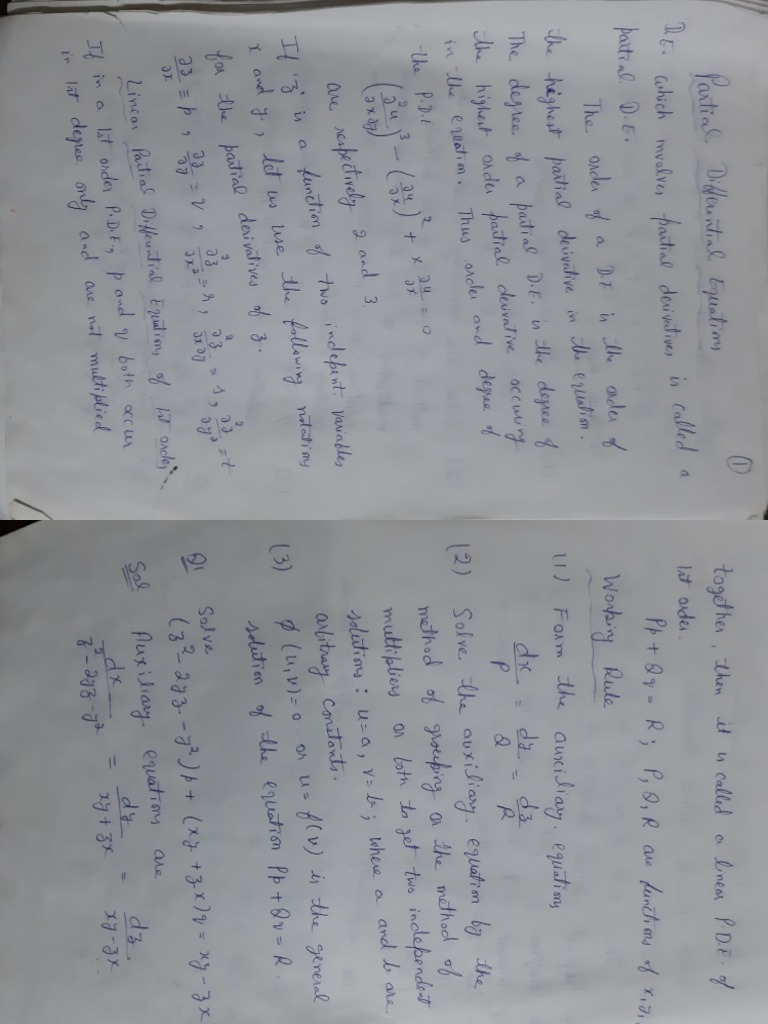 ①
Partial Differential Equations
D.E. which involves partial derivatives is called a
partial D.E.
The order of a D.E. is the order of
the highest partial derivative in the equation.
The degree of a partial D.E. is the degree of
the highest order partial derivative occuring
in the equation. Thus order and degree of
the P.D.E
(∂²u/∂x∂y)³ - (∂u/∂x)² + x ∂u/∂x = 0
are respectively 2 and 3
If 'z' is a function of two indepent. variables
x and y, let us use the following notations
for the partial derivatives of z.
∂z/∂x = p, ∂z/∂y = q, ∂²z/∂x² = r, ∂²z/∂x∂y = s, ∂²z/∂y² = t
Linear Partial Differential Equations of 1st order
If in a 1st order P.D.E, p and q both occur
in 1st degree only and are not multiplied
together, then it is called a linear P.D.E. of
1st order.
Pp + Qq = R; P, Q, R are functions of x, y,
Working Rule
(1) Form the auxiliary equations
dx/P = dy/Q = dz/R
(2) Solve the auxiliary equation by the
method of grouping or the method of
multipliers or both to get two independent
solutions: u=a, v=b; where a and b are
arbitrary constants.
(3) φ(u,v)=0 or u=f(v) is the general
solution of the equation Pp + Qq = R.
Q1 Solve
(z² - 2yz - y²)p + (xy + zx)q = xy - zx
Sol Auxiliary equations are
dx/z²-2yz-y² = dy/xy+zx = dz/xy-zx